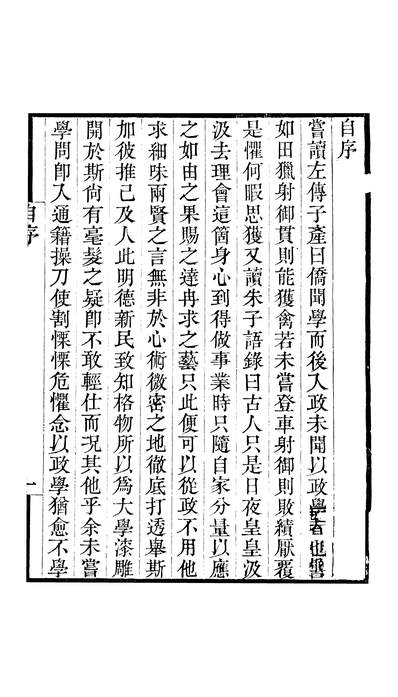 自序
嘗讀左傳子產曰僑聞學而後入政未聞以政學者也譬
如田獵射御貫則能獲禽若未嘗登車射御則敗績厭覆
是懼何暇思獲又讀朱子語錄曰古人只是日夜皇皇汲
汲去理會這箇身心到得做事業時只隨自家分量以應
之如由之果賜之達冉求之藝只此便可以從政不用他
求細味兩賢之言無非於心術微密之地徹底打透舉斯
加彼推己及人此明德新民致知格物所以為大學漆雕
開於斯尙有毫髮之疑卽不敢輕仕而况其他乎余未嘗
學問卽入通籍操刀使割慄慄危懼念以政學猶愈不學
自序
一